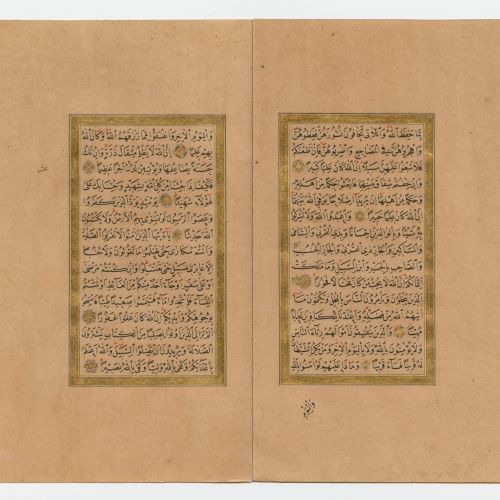 بِمَا حَفِظَ اللهُ وَاللَّاتِي تَخَافُونَ نُشُوزَهُنَّ فَعِظُوهُنَّ
وَاهْجُرُوهُنَّ فِي الْمَضَاجِعِ وَاضْرِبُوهُنَّ فَاِنْ اَطَعْنَكُمْ
فَلَا تَبْغُوا عَلَيْهِنَّ سَبِيلًا اِنَّ اللهَ كَانَ عَلِيًّا كَبِيرًا
وَاِنْ خِفْتُمْ شِقَاقَ بَيْنِهِمَا فَابْعَثُوا حَكَمًا مِنْ اَهْلِهِ
وَحَكَمًا مِنْ اَهْلِهَا اِنْ يُرِيدَا اِصْلَاحًا يُوَفِّقِ اللهُ بَيْنَهُمَا
اِنَّ اللهَ كَانَ عَلِيمًا خَبِيرًا وَاعْبُدُوا اللهَ وَلَا تُشْرِكُوا
بِهِ شَيْئًا وَبِالْوَالِدَيْنِ اِحْسَانًا وَبِذِي الْقُرْبَى وَالْيَتَامَى
وَالْمَسَاكِينِ وَالْجَارِ ذِي الْقُرْبَى وَالْجَارِ الْجُنُبِ
وَالصَّاحِبِ بِالْجَنْبِ وَابْنِ السَّبِيلِ وَمَا مَلَكَتْ
اَيْمَانُكُمْ اِنَّ اللهَ لَا يُحِبُّ مَنْ كَانَ مُخْتَالًا فَخُورًا
الَّذِينَ يَبْخَلُونَ وَيَأْمُرُونَ النَّاسَ بِالْبُخْلِ وَيَكْتُمُونَ مَا
اٰتٰيهُمُ اللهُ مِنْ فَضْلِهِ وَاَعْتَدْنَا لِلْكَافِرِينَ عَذَابًا
مُهِينًا وَالَّذِينَ يُنْفِقُونَ اَمْوَالَهُمْ رِئَاءَ النَّاسِ
وَلَا يُؤْمِنُونَ بِاللهِ وَلَا بِالْيَوْمِ الْاٰخِرِ وَمَنْ يَكُنِ الشَّيْطَانُ
لَهُ قَرِينًا فَسَاءَ قَرِينًا وَمَاذَا عَلَيْهِمْ لَوْ اٰمَنُوا بِاللهِ
واليوم
وَالْيَوْمِ الْاٰخِرِ وَاَنْفَقُوا مِمَّا رَزَقَهُمُ اللهُ وَكَانَ اللهُ
بِهِمْ عَلِيمًا اِنَّ اللهَ لَا يَظْلِمُ مِثْقَالَ ذَرَّةٍ وَاِنْ تَكُ
حَسَنَةً يُضَاعِفْهَا وَيُؤْتِ مِنْ لَدُنْهُ اَجْرًا عَظِيمًا
فَكَيْفَ اِذَا جِئْنَا مِنْ كُلِّ اُمَّةٍ بِشَهِيدٍ وَجِئْنَا بِكَ عَلَى
هٰؤُلَاءِ شَهِيدًا يَوْمَئِذٍ يَوَدُّ الَّذِينَ كَفَرُوا
وَعَصَوُا الرَّسُولَ لَوْ تُسَوَّى بِهِمُ الْاَرْضُ وَلَا يَكْتُمُونَ
اللهَ حَدِيثًا يَا اَيُّهَا الَّذِينَ اٰمَنُوا لَا تَقْرَبُوا الصَّلٰوةَ
وَاَنْتُمْ سُكَارَى حَتَّى تَعْلَمُوا مَا تَقُولُونَ وَلَا جُنُبًا
اِلَّا عَابِرِي سَبِيلٍ حَتَّى تَغْتَسِلُوا وَاِنْ كُنْتُمْ مَرْضَى
اَوْ عَلَى سَفَرٍ اَوْ جَاءَ اَحَدٌ مِنْكُمْ مِنَ الْغَائِطِ اَوْ لٰمَسْتُمُ
النِّسَاءَ فَلَمْ تَجِدُوا مَاءً فَتَيَمَّمُوا صَعِيدًا طَيِّبًا فَامْسَحُوا
بِوُجُوهِكُمْ وَاَيْدِيكُمْ اِنَّ اللهَ كَانَ عَفُوًّا غَفُورًا
اَلَمْ تَرَ اِلَى الَّذِينَ اُوتُوا نَصِيبًا مِنَ الْكِتَابِ يَشْتَرُونَ
الضَّلَالَةَ وَيُرِيدُونَ اَنْ تَضِلُّوا السَّبِيلَ وَاللهُ اَعْلَمُ
بِاَعْدَائِكُمْ وَكَفَى بِاللهِ وَلِيًّا وَكَفَى بِاللهِ نَصِيرًا